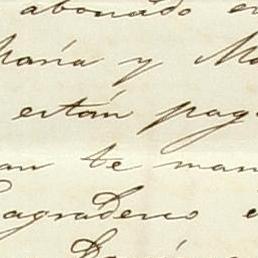 abonado e
María y M
están pag
an te man
agradezco e